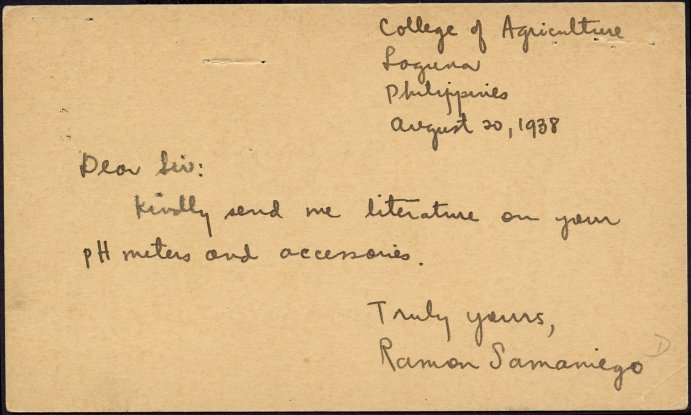 College of Agriculture
Laguna
Philippines
August 20, 1938
Dear Sir:
Kindly send me literature on your
pH meters and accessories.
Truly yours,
Ramon Samaniego
D